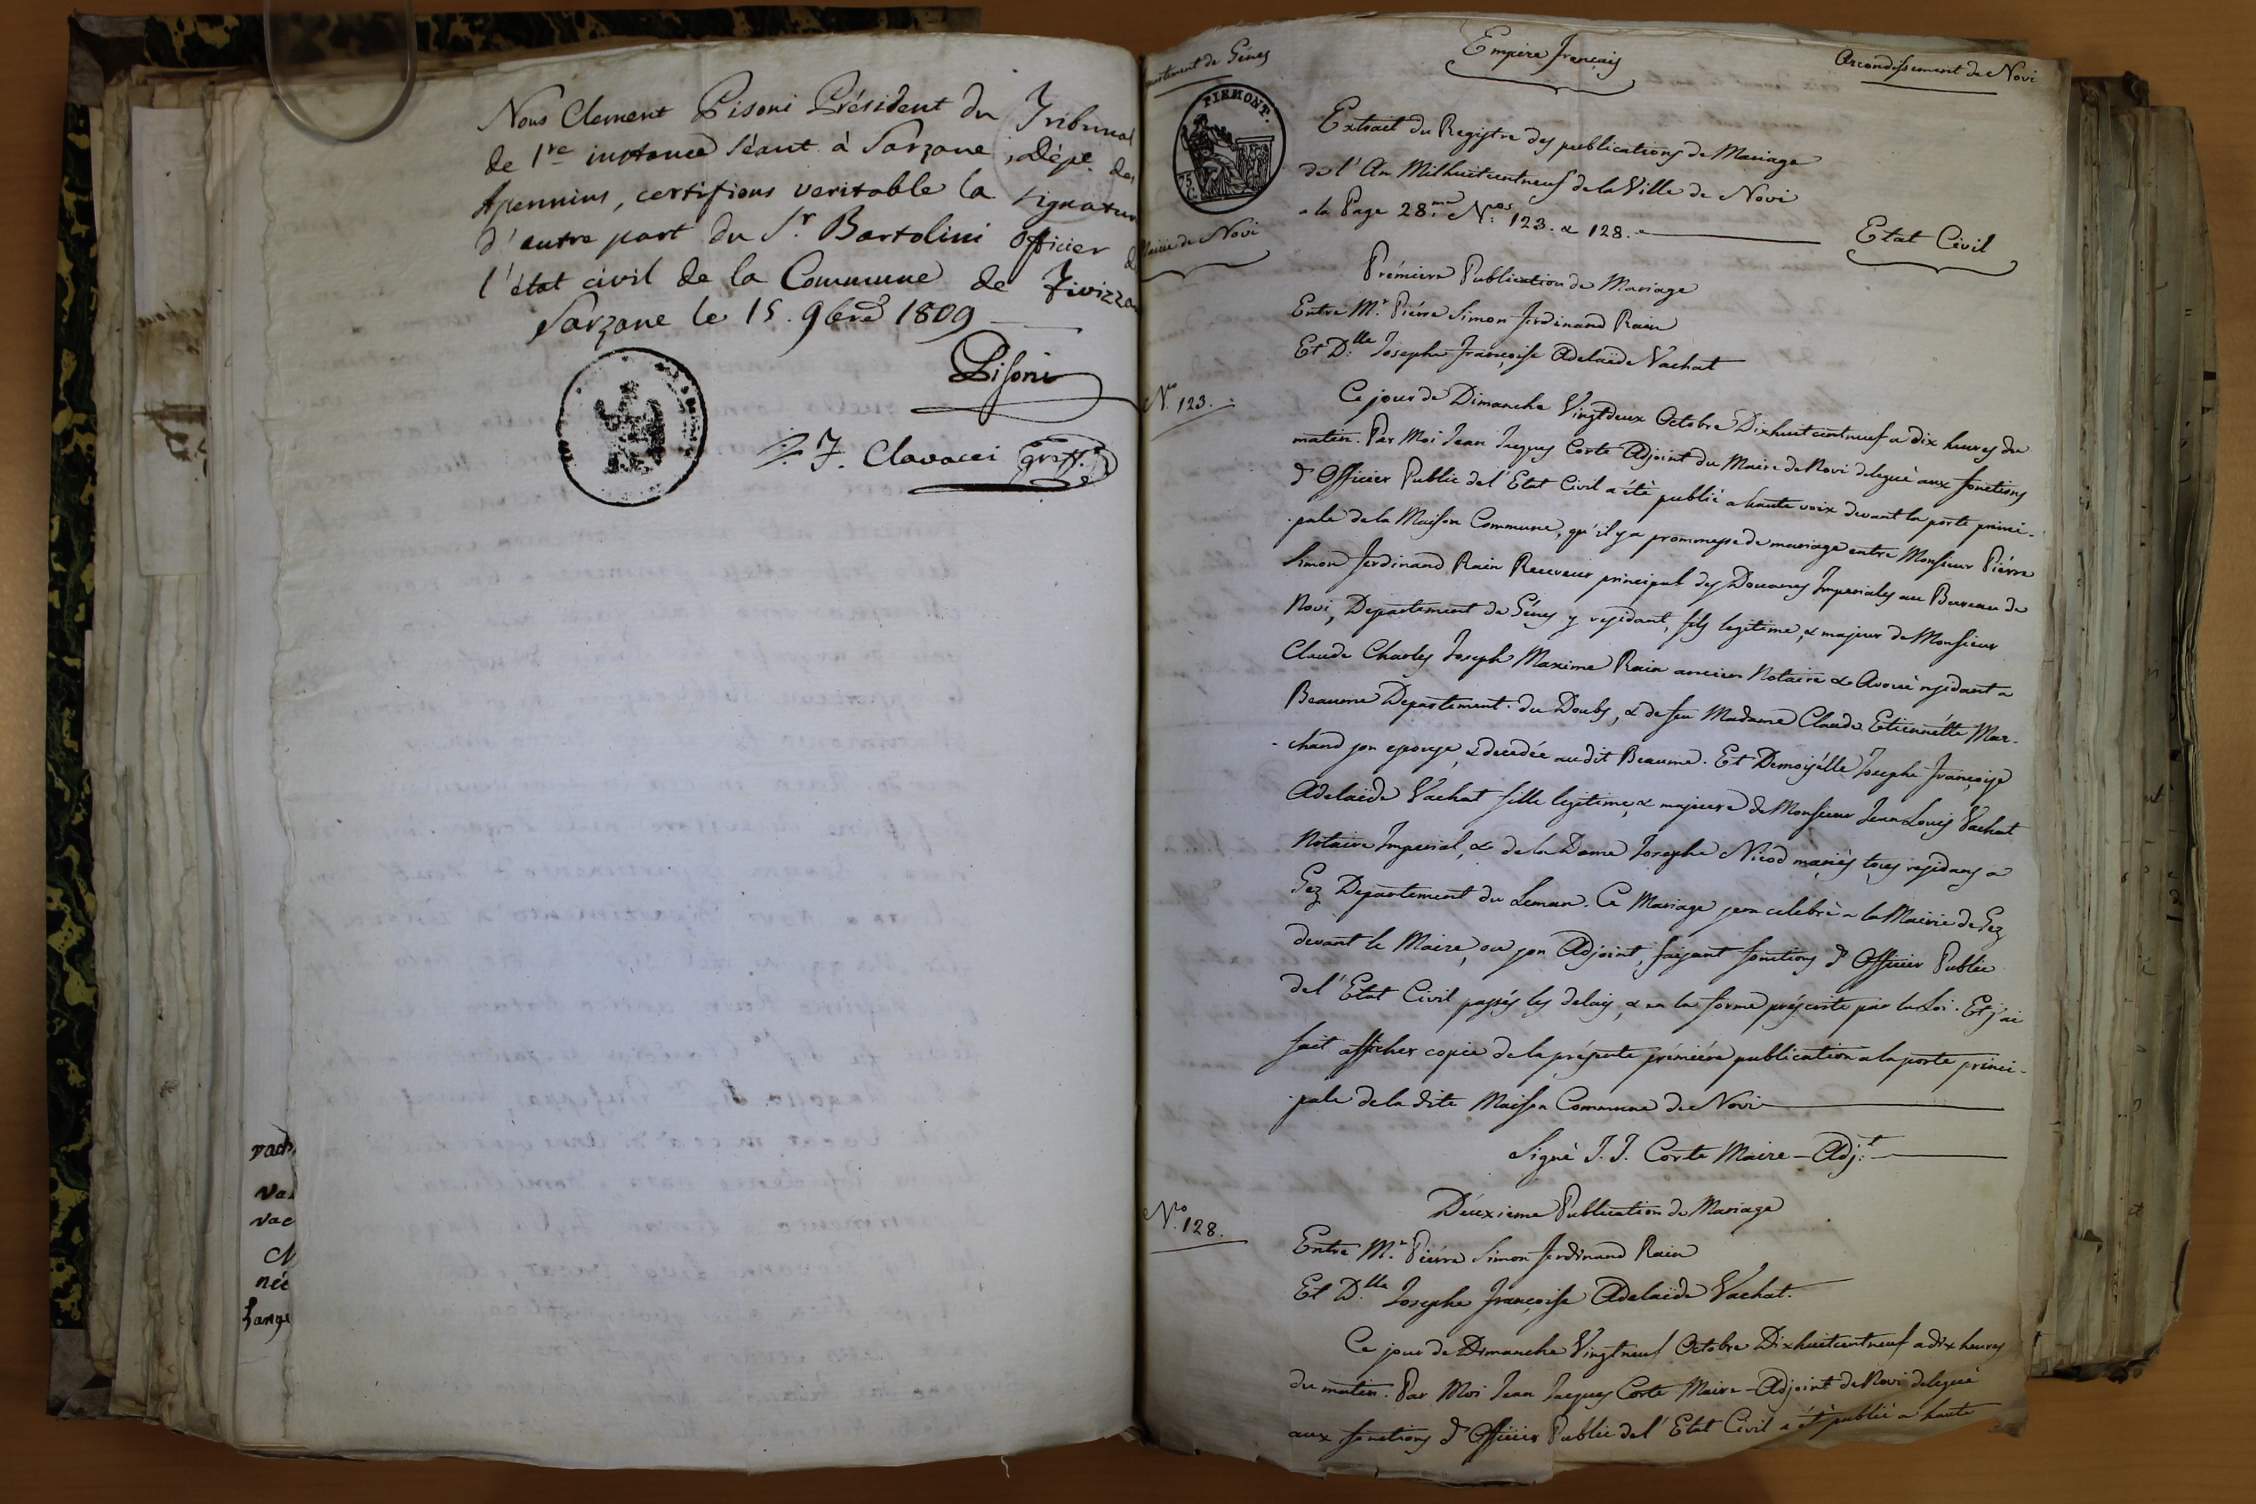 Nous Clement Pisoni Président du Tribunal
de 1re instance séant à Sarzane, Dépt. des
Apennins, certifions veritable la signature
d'autre part du Sr. Bartolini Officier de
l'état civil de la Commune de Fivizzan
Sarzane le 15. 9bre 1809
Pisoni
Z. F. Clavacci greff.
vach
va
vac
née
artement de Génes
Empire français
Arrondissement de Novi
PIEMONT.
75
Mairie de Novi
Extrait du Registre des publications de Mariage
de l'An Milhuitcentneuf de la Ville de Novi
a la Page 28.me Nos. 123. & 128.
Etat Civil
Prémiere Publication de Mariage
Entre Mr. Piérre Simon Ferdinand Rain
Et D.lle Josephe Françoise Adelaïde Vachat
No. 123.
Ce jour de Dimanche Vingtdeux Octobre Dixhuitcentneuf a dix heures du
matin. Par Moi Jean Jacques Corte Adjoint du Maire de Novi delegué aux fonctions
d'Officier Public de l'Etat Civil a été publié a haute voix devant la porte princi-
-pale de la Maison Commune, qu'il y a prommesse de mariage entre Monsieur Piérre
Simon Ferdinand Rain Receveur principal des Douanes Imperiales au Bureau de
Novi, Departement de Génes y residant, fils legitime, & majeur de Monsieur
Claude Charles Joseph Maxime Rain ancien Notaire & Avoué residant a
Beaume Departement du Doubs, & de feu Madame Claude Etiennétte Mar-
-chand son epouse, & decedée au dit Beaume. Et Demoisélle Josephe Françoise
Adelaïde Vachat fille legitime, & majeure de Monsieur Jean Louis Vachat
Notaire Imperial, & de la Dame Josephe Nicod mariés tous residans a
Gez Departement du Leman. Ce Mariage sera celebré a la Mairie de Gez
devant le Maire, ou son Adjoint, faisant fonctions d'Officier Public
de l'Etat Civil passés les delais, & en la forme préscrite par la Loi. Et j'ai
fait afficher copie de la présente prémiére publication a la porte princi-
-pale de la dite Maison Commune de Novi
Signé J. J. Corte Maire-Adj.t
Déuxieme Publication de Mariage
No. 128.
Entre Mr. Piérre Simon Ferdinand Rain
Et D.lle Josephe Françoise Adelaïde Vachat.
Ce jour de Dimanche Vingtneuf Octobre Dixhuitcentneuf a dix heures
du matin. Par Moi Jean Jacques Corte Maire-Adjoint de Novi delegué
aux fonctions d'Officier Public de l'Etat Civil a été publié a haute